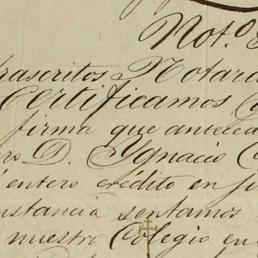 Not.º
rascritos Notar
Certificamos
firma que anteced
D. Ygnacio C
entero crédito en j
nstancia sentamos
nuestro Colegio en